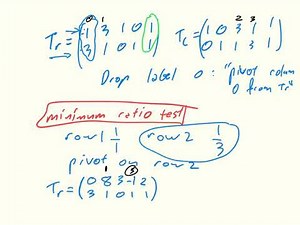 0 1 2 3
Tr = (1 3 1 0 1 Tc = (1 0 3 1 1
3 1 0 1 1) 0 1 1 3 1)
Drop label 0: "pivot column
0 from Tr"
minimum ratio test
row 1 1/1 row 2 1/3
pivot on row 2
1 3
Tr = (0 8 3 -1 2
3 1 0 1 1)